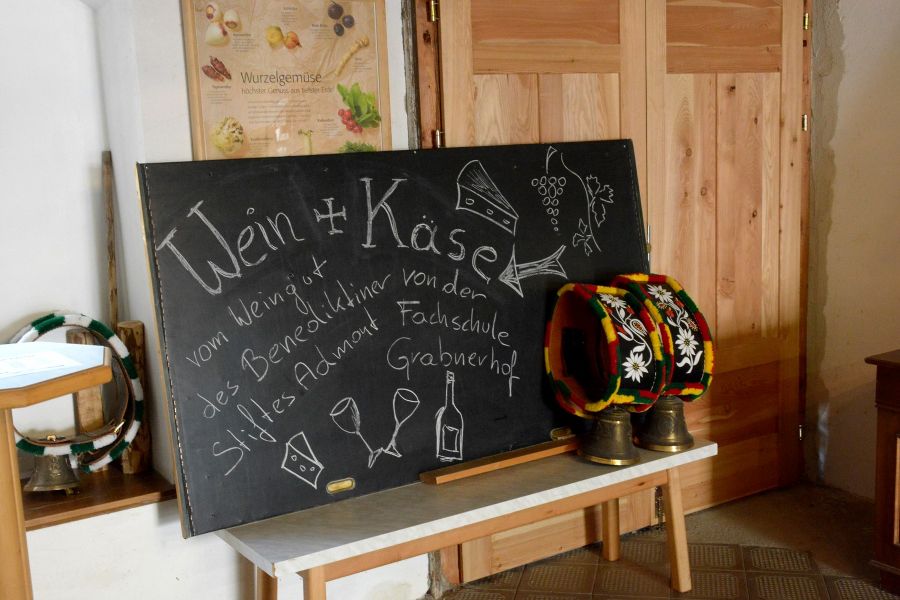 Wurzelgemüse
höchster Genuss aus tiefster Erde
Wein + Käse
vom Weingut
des Benediktiner
Stiftes Admont
von der
Fachschule
Grabnerhof